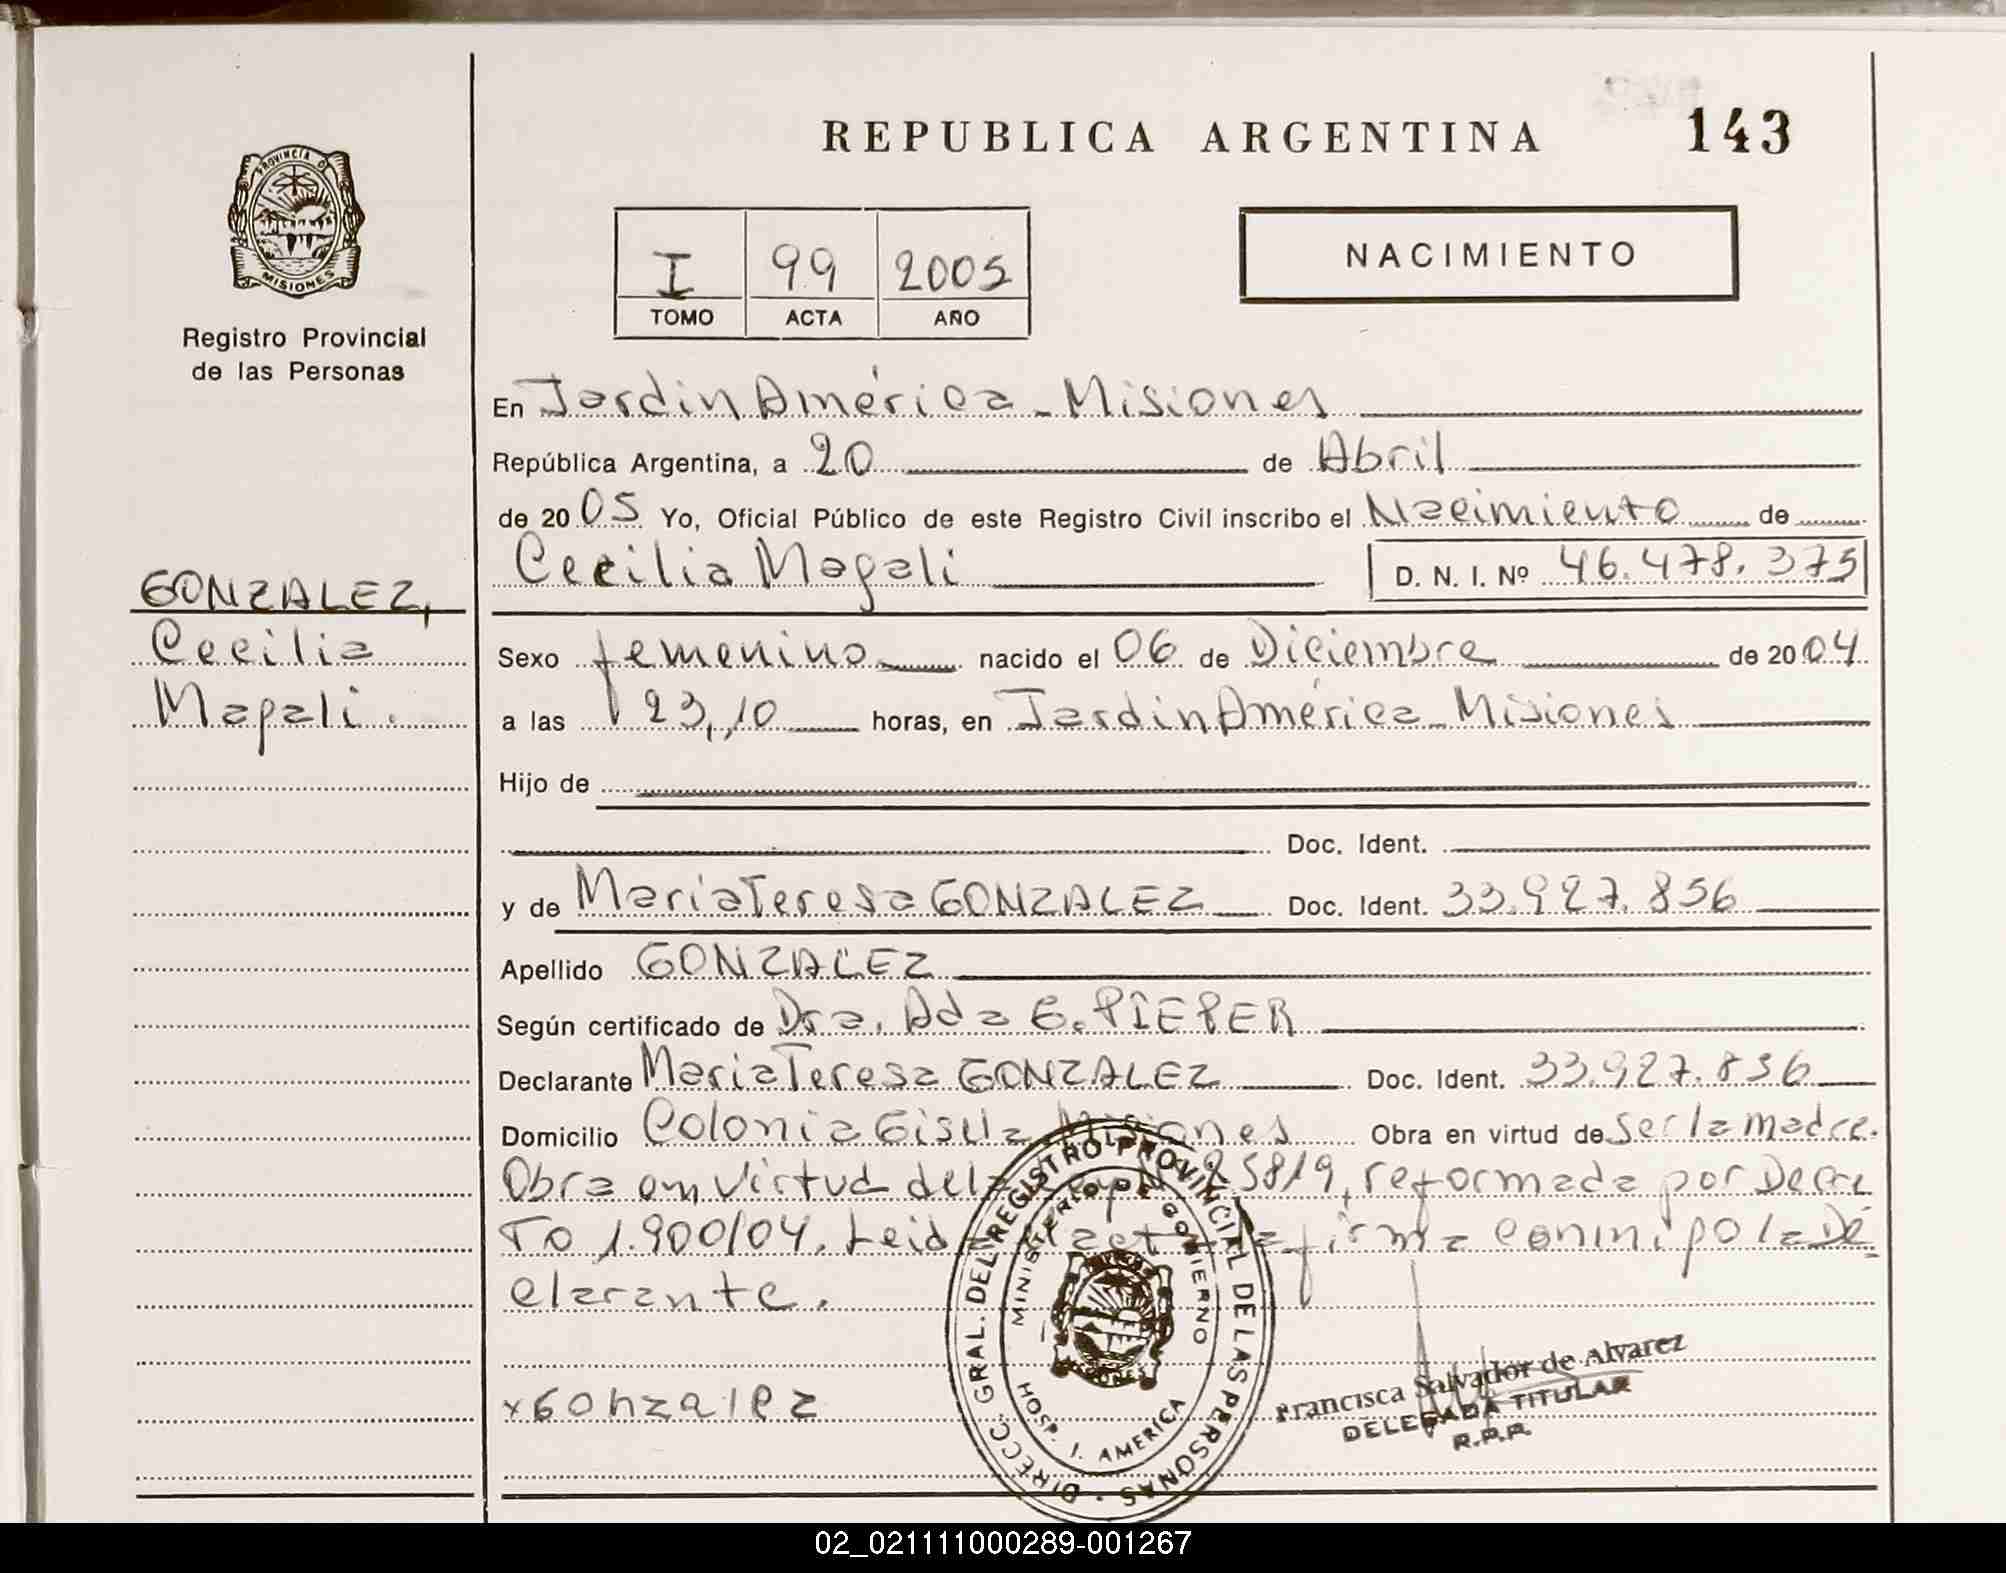 REPUBLICA ARGENTINA 143
PROVINCIA DE
MISIONES
Registro Provincial
de las Personas
I 99 2005
TOMO ACTA AÑO
NACIMIENTO
En Jardin América - Misiones
República Argentina, a 20 de Abril
de 2005 Yo, Oficial Público de este Registro Civil inscribo el Nacimiento de
Cecilia Magali D. N. I. Nº 46.478.375
GONZALEZ,
Cecilia
Magali.
Sexo femenino nacido el 06 de Diciembre de 2004
a las 23,10 horas, en Jardin América - Misiones
Hijo de
Doc. Ident.
y de Maria Teresa GONZALEZ Doc. Ident. 33.927.856
Apellido GONZALEZ
Según certificado de Dra. Ada E. PIEPER
Declarante Maria Teresa GONZALEZ Doc. Ident. 33.927.856
Domicilio Colonia Gisela Misiones Obra en virtud de ser la madre.
Obra en virtud de la 25819, reformada por Decre
to 1.900/04. Leida el acta la firma conmigo la De
clarante.
x Gonzalez
DIRECC. GRAL. DEL REGISTRO PROVINCIAL DE LAS PERSONAS
MINISTERIO DE GOBIERNO
HOSP. I. AMERICA
Francisca Salvador de Alvarez
DELEGADA TITULAR
R.P.P.
02_021111000289-001267